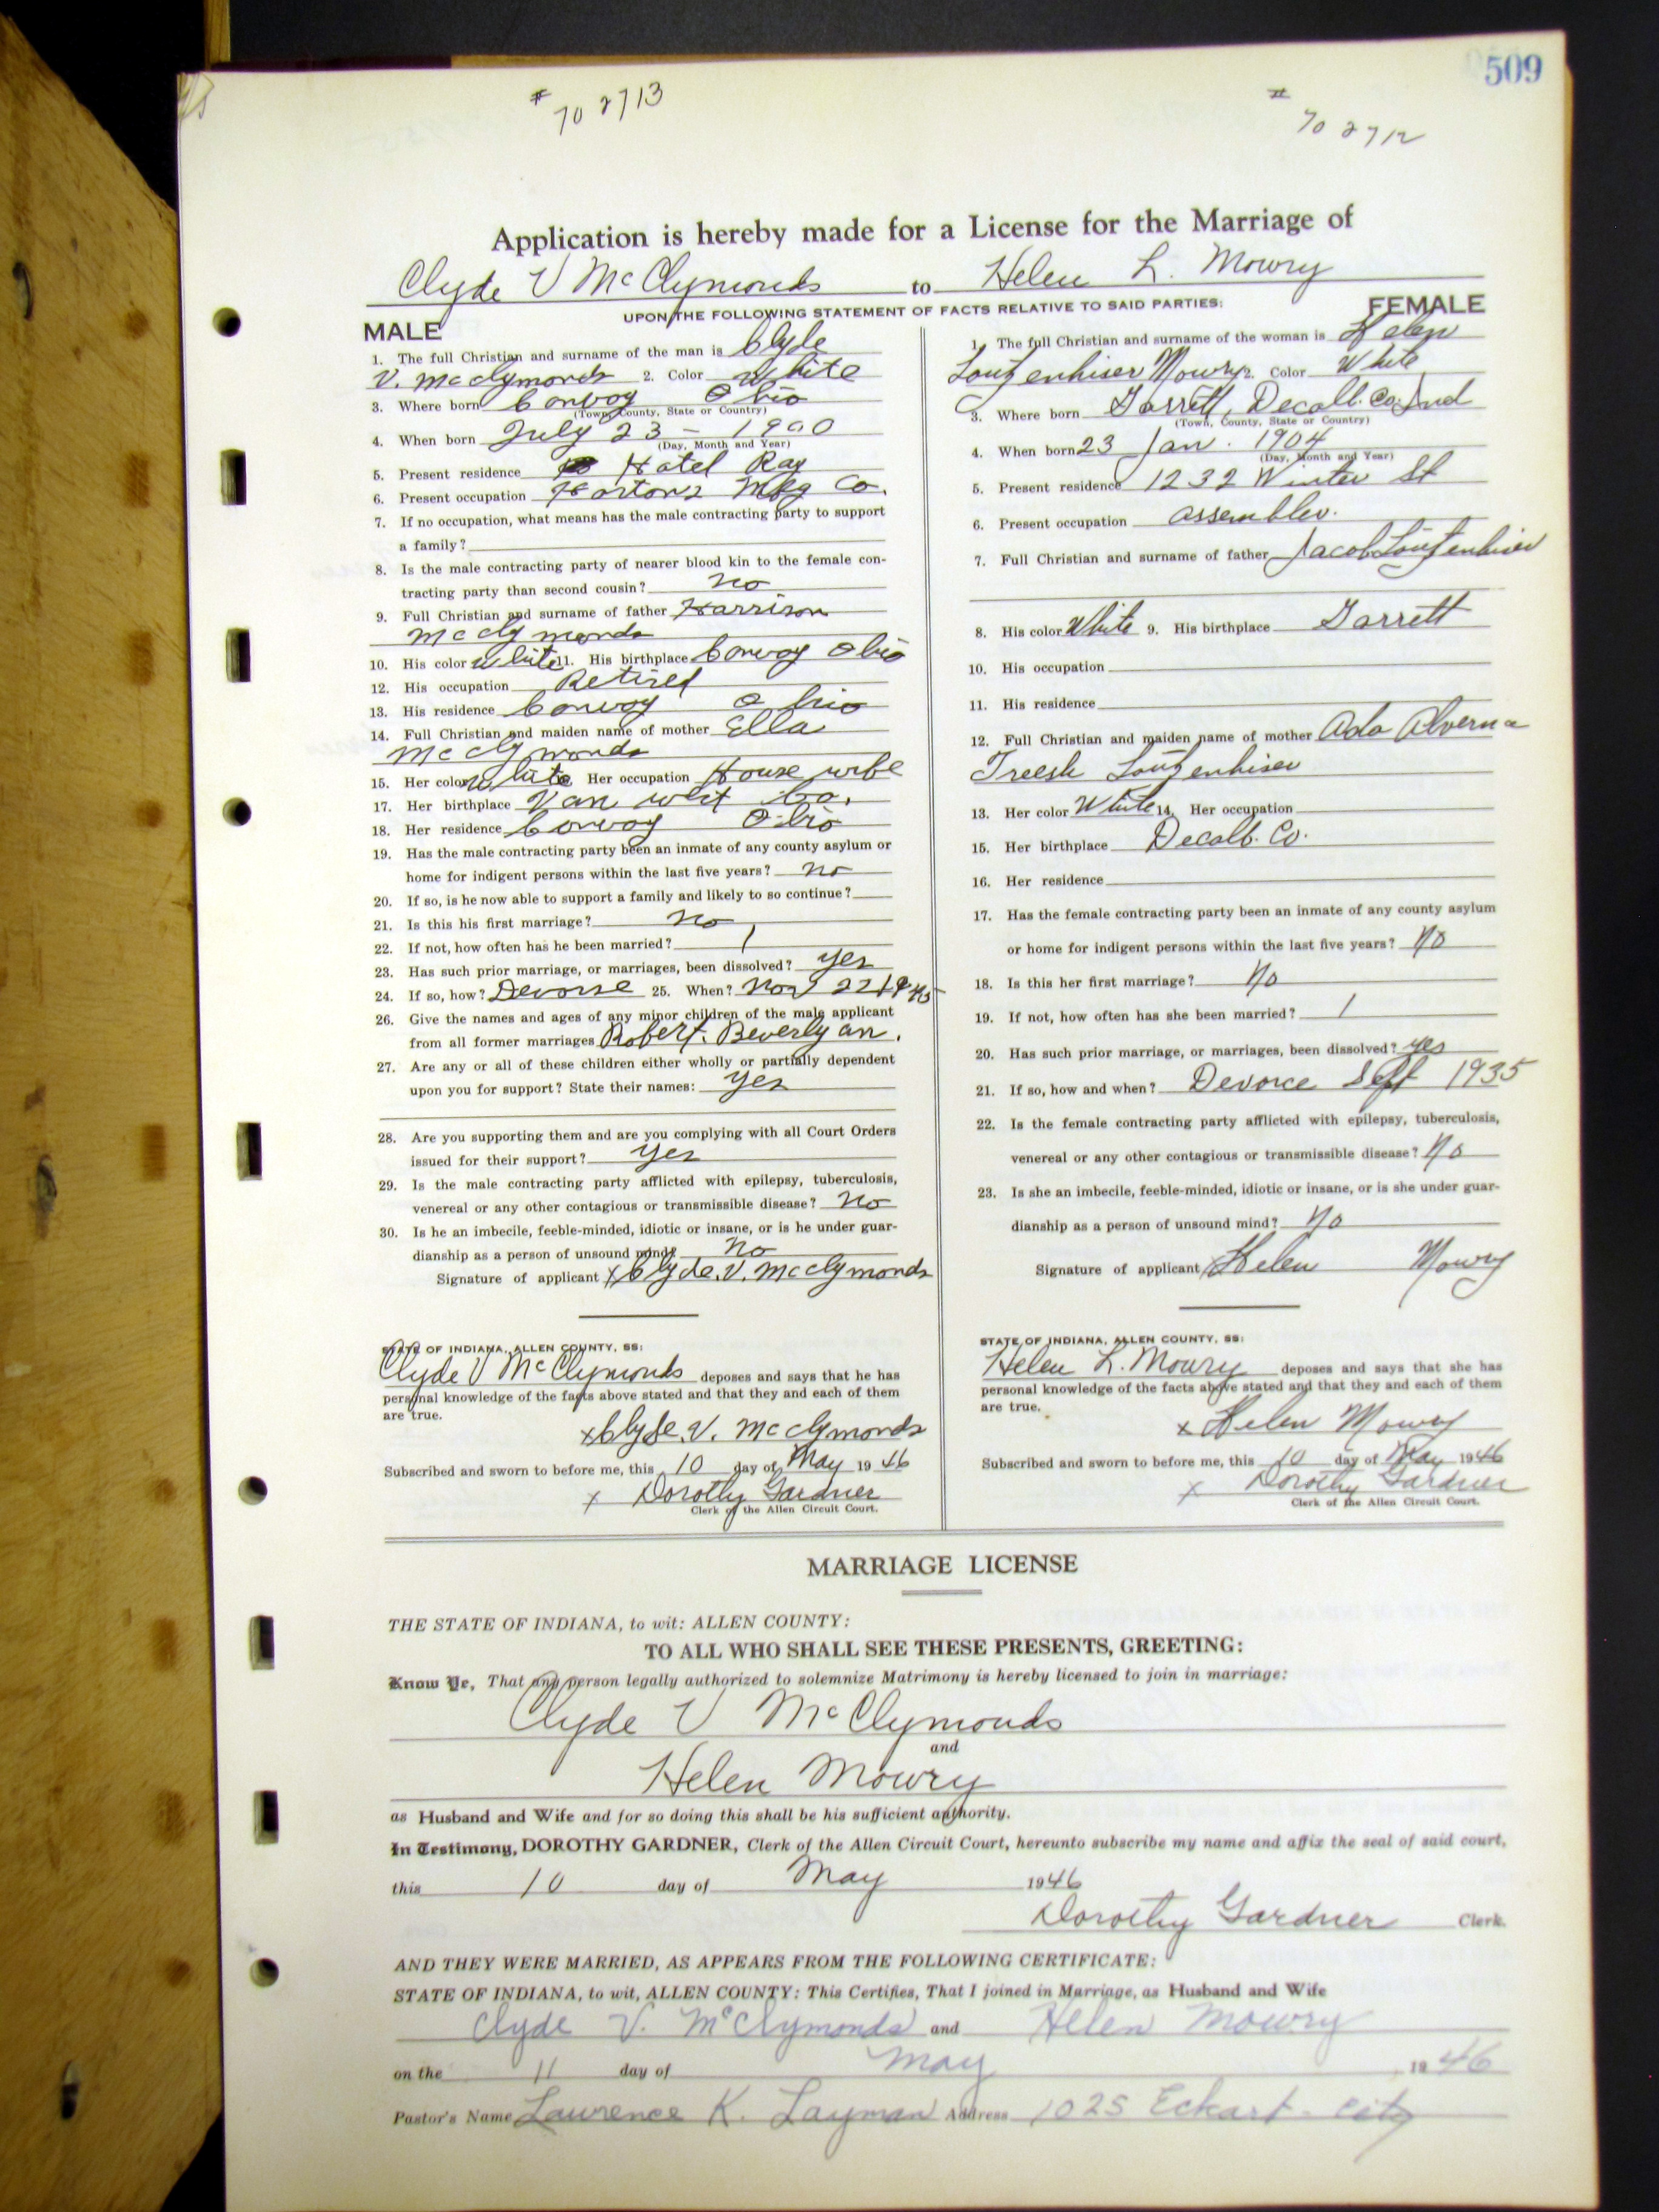 509
# 70 2713
# 70 2712
Application is hereby made for a License for the Marriage of
Clyde V McClymonds to Helen L. Mowry
UPON THE FOLLOWING STATEMENT OF FACTS RELATIVE TO SAID PARTIES:
MALE
1. The full Christian and surname of the man is Clyde
V. McClymonds 2. Color White
3. Where born Convoy Ohio
(Town, County, State or Country)
4. When born July 23 - 1900
(Day, Month and Year)
5. Present residence Hotel Ray
6. Present occupation Hortons Mfg Co.
7. If no occupation, what means has the male contracting party to support
a family?
8. Is the male contracting party of nearer blood kin to the female con-
tracting party than second cousin? no
9. Full Christian and surname of father Harrison
McClymonds
10. His color white 11. His birthplace Convoy Ohio
12. His occupation Retired
13. His residence Convoy Ohio
14. Full Christian and maiden name of mother Ella
McClymonds
15. Her color white Her occupation House wife
17. Her birthplace Van wert Co.
18. Her residence Convoy Ohio
19. Has the male contracting party been an inmate of any county asylum or
home for indigent persons within the last five years? no
20. If so, is he now able to support a family and likely to so continue?
21. Is this his first marriage? no
22. If not, how often has he been married? 1
23. Has such prior marriage, or marriages, been dissolved? yes
24. If so, how? Devorse 25. When? Nov 22 1945
26. Give the names and ages of any minor children of the male applicant
from all former marriages Robert. Beverly an.
27. Are any or all of these children either wholly or partially dependent
upon you for support? State their names: yes
28. Are you supporting them and are you complying with all Court Orders
issued for their support? yes
29. Is the male contracting party afflicted with epilepsy, tuberculosis,
venereal or any other contagious or transmissible disease? no
30. Is he an imbecile, feeble-minded, idiotic or insane, or is he under guar-
dianship as a person of unsound mind? no
Signature of applicant x Clyde. V. McClymonds
STATE OF INDIANA, ALLEN COUNTY, SS:
Clyde V McClymonds deposes and says that he has
personal knowledge of the facts above stated and that they and each of them
are true.
x Clyde. V. McClymonds
Subscribed and sworn to before me, this 10 day of May 1946
x Dorothy Gardner
Clerk of the Allen Circuit Court.
FEMALE
1. The full Christian and surname of the woman is Helen
Loutzenhiser Mowry 2. Color White
3. Where born Garrett, Decalb. Co. Ind
(Town, County, State or Country)
4. When born 23 Jan. 1904
(Day, Month and Year)
5. Present residence 1232 Winter St
6. Present occupation assembler.
7. Full Christian and surname of father Jacob Loutzenhiser
8. His color White 9. His birthplace Garrett
10. His occupation
11. His residence
12. Full Christian and maiden name of mother Ada Alverna
Treesh Loutzenhiser
13. Her color White 14. Her occupation
15. Her birthplace Decalb. Co.
16. Her residence
17. Has the female contracting party been an inmate of any county asylum
or home for indigent persons within the last five years? No
18. Is this her first marriage? No
19. If not, how often has she been married? 1
20. Has such prior marriage, or marriages, been dissolved? yes
21. If so, how and when? Devorce Sept 1935
22. Is the female contracting party afflicted with epilepsy, tuberculosis,
venereal or any other contagious or transmissible disease? No
23. Is she an imbecile, feeble-minded, idiotic or insane, or is she under guar-
dianship as a person of unsound mind? No
Signature of applicant Helen Mowry
STATE OF INDIANA, ALLEN COUNTY, SS:
Helen L. Mowry deposes and says that she has
personal knowledge of the facts above stated and that they and each of them
are true.
x Helen Mowry
Subscribed and sworn to before me, this 10 day of May 1946
x Dorothy Gardner
Clerk of the Allen Circuit Court.
MARRIAGE LICENSE
THE STATE OF INDIANA, to wit: ALLEN COUNTY:
TO ALL WHO SHALL SEE THESE PRESENTS, GREETING:
Know Ye, That any person legally authorized to solemnize Matrimony is hereby licensed to join in marriage:
Clyde V McClymonds
and
Helen Mowry
as Husband and Wife and for so doing this shall be his sufficient authority.
In Testimony, DOROTHY GARDNER, Clerk of the Allen Circuit Court, hereunto subscribe my name and affix the seal of said court,
this 10 day of May 1946
Dorothy Gardner Clerk.
AND THEY WERE MARRIED, AS APPEARS FROM THE FOLLOWING CERTIFICATE:
STATE OF INDIANA, to wit, ALLEN COUNTY: This Certifies, That I joined in Marriage, as Husband and Wife
Clyde V. McClymonds and Helen Mowry
on the 11 day of May 1946
Pastor's Name Lawrence K. Layman Address 1025 Eckart - City